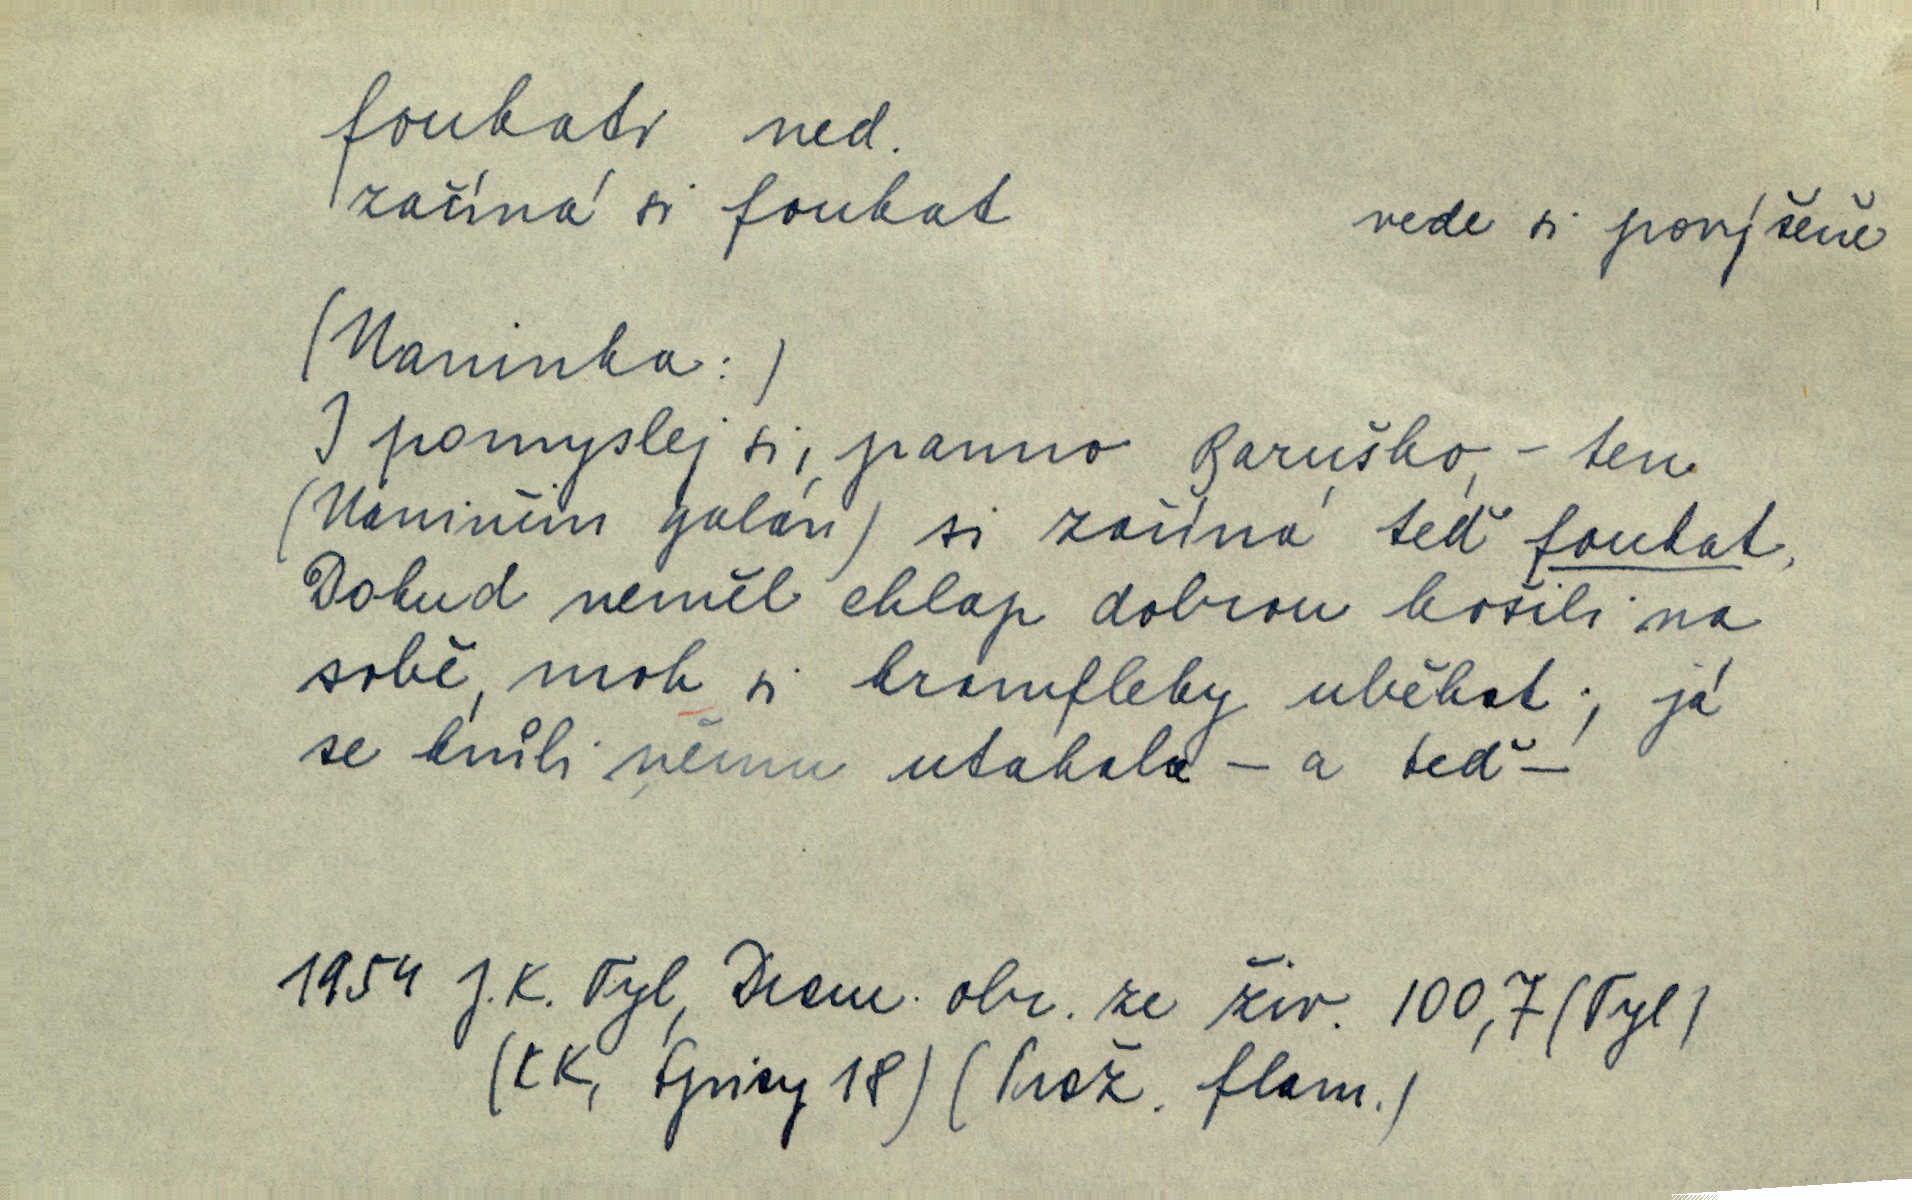 foukati ned.
začíná si foukat
vede si povýšeně
(Naninka:)
I pomyslej si, panno Baruško, - ten
(Naninčin galán) si začíná teď foukat.
Dokud neměl chlap dobrou košili na
sobě, moh si kramfleky uběhat; já
se kvůli němu utahala - a teď -
1954 J.K. Tyl, Dram. obr. ze živ. 100,7 (Tyl)
(KK, Spisy 18) (Praž. flam.)